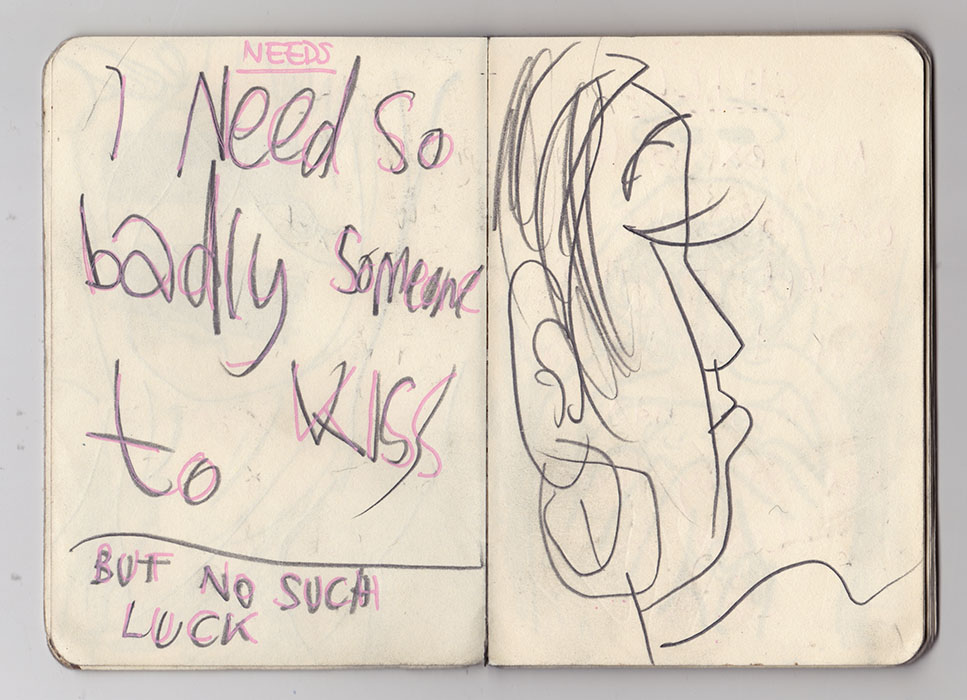 NEEDS
I Need So
badly Someone
to KISS
BUT NO SUCH
LUCK